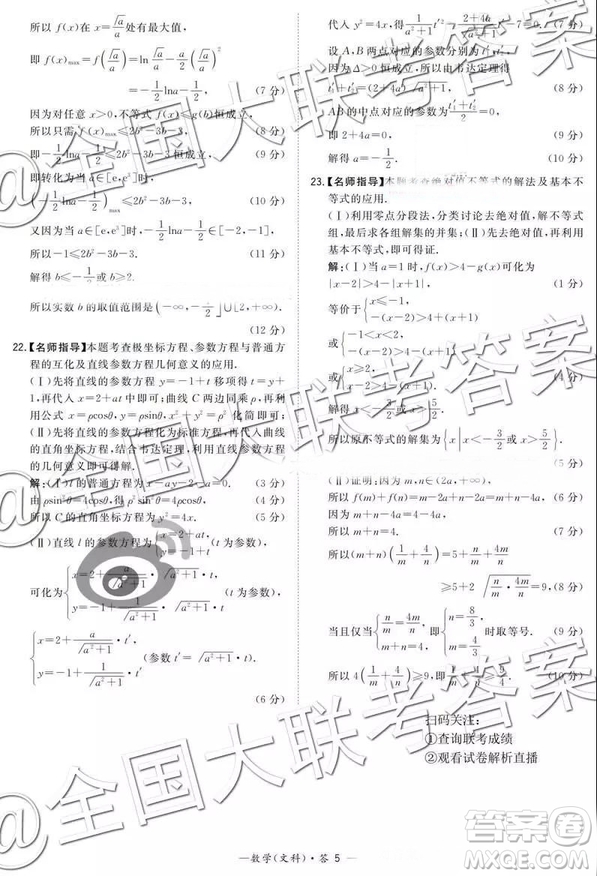 所以 f(x) 在 x=√a/a 处有最大值,
即 f(x)max=f(√a/a)=ln√a/a-a(√a/a)²
=-1/2 lna-1/2. (7 分)
因为对任意 x>0,不等式 f(x)≤g(b)恒成立,
所以只需 f(x)max≤2b²-3b-3 恒成立. (8 分)
即-1/2 lna-1/2≤2b²-3b-3 恒成立. (9 分)
(10 分)
(11 分)
所以-1≤2b²-3b-3.
解得 b≤-1/2 或 b≥2.
所以实数 b 的取值范围是(-∞,-1/2]∪[2,+∞).
(12 分)
22.【名师指导】本题考查极坐标方程、参数方程与普通方
程的互化及直线参数方程几何意义的应用.
(Ⅰ)先将直线的参数方程 y=-1+t 移项得 t=y+1,
代入 x=2+at 中即可;曲线 C 两边同乘 ρ,再利
用公式 x=ρcosθ,y=ρsinθ,x²+y²=ρ² 化简即可;
(Ⅱ)先将直线的参数方程化为标准方程,再代入曲线
的直角坐标方程,结合韦达定理,利用直线参数方程的
几何意义即可得解.
解:(Ⅰ)l 的普通方程为 x-ay-2-a=0. (3 分)
由 ρsin²θ=4cosθ,得 ρ²sin²θ=4ρcosθ, (4 分)
所以 C 的直角坐标方程为 y²=4x. (5 分)
(Ⅱ)直线 l 的参数方程为{x=2+at, y=-1+t (t 为参数),
可化为{x=2+a/√(a²+1)·√(a²+1)·t, y=-1+1/√(a²+1)·√(a²+1)·t (t 为参数),
{x=2+a/√(a²+1)·t′, y=-1+1/√(a²+1)·t′ (参数 t′=√(a²+1)·t).
(6 分)
代入 y²=4x,得 (7 分)
设 A,B 两点对应的参数分别为
因为 Δ>0 恒成立,所以由韦达定理得
t′₁+t′₂=(2+4a)√(a²+1). (8 分)
AB 的中点对应的参数为 (t′₁+t′₂)/2=0.
即 2+4a=0. (9 分)
解得 a=-1/2. (10 分)
23.【名师指导】本题考查绝对值不等式的解法及基本不
等式的应用.
(Ⅰ)利用零点分段法,分类讨论去绝对值,解不等式
组,最后求各组解集的并集;(Ⅱ)先去绝对值,再利用
基本不等式即可得证.
解:(Ⅰ)当 a=1 时,f(x)>4-g(x)可化为
|x-2|>4-|x+1|, (1 分)
等价于{x≤-1, -(x-2)>4+(x+1)
或{ -(x-2)>4-(x+1)
或{x≥2,
所以原不等式的解集为{x|x<-3/2 或 x>5/2}.
(5 分)
(Ⅱ)证明:因为 m,n∈(2a,+∞),
所以 f(m)+f(n)=m-2a+n-2a=m+n-4a=4-4a.
所以 m+n=4. (7 分)
所以(m+n)(1/m+4/n)=5+n/m+4m/n (8 分)
≥5+2√(n/m·4m/n)=9,
当且仅当 即{n=8/3, m=4/3 时取等号. (9 分)
所以 4(1/m+4/n)≥9,即 1/m+4/n≥9/4. (10 分)
扫码关注:
①查询联考成绩
②观看试卷解析直播
—数学(文科)·答 5—
@全国大联考答案
@全国大联考答案
@全国大联考答案
答案圈
MXQE.COM